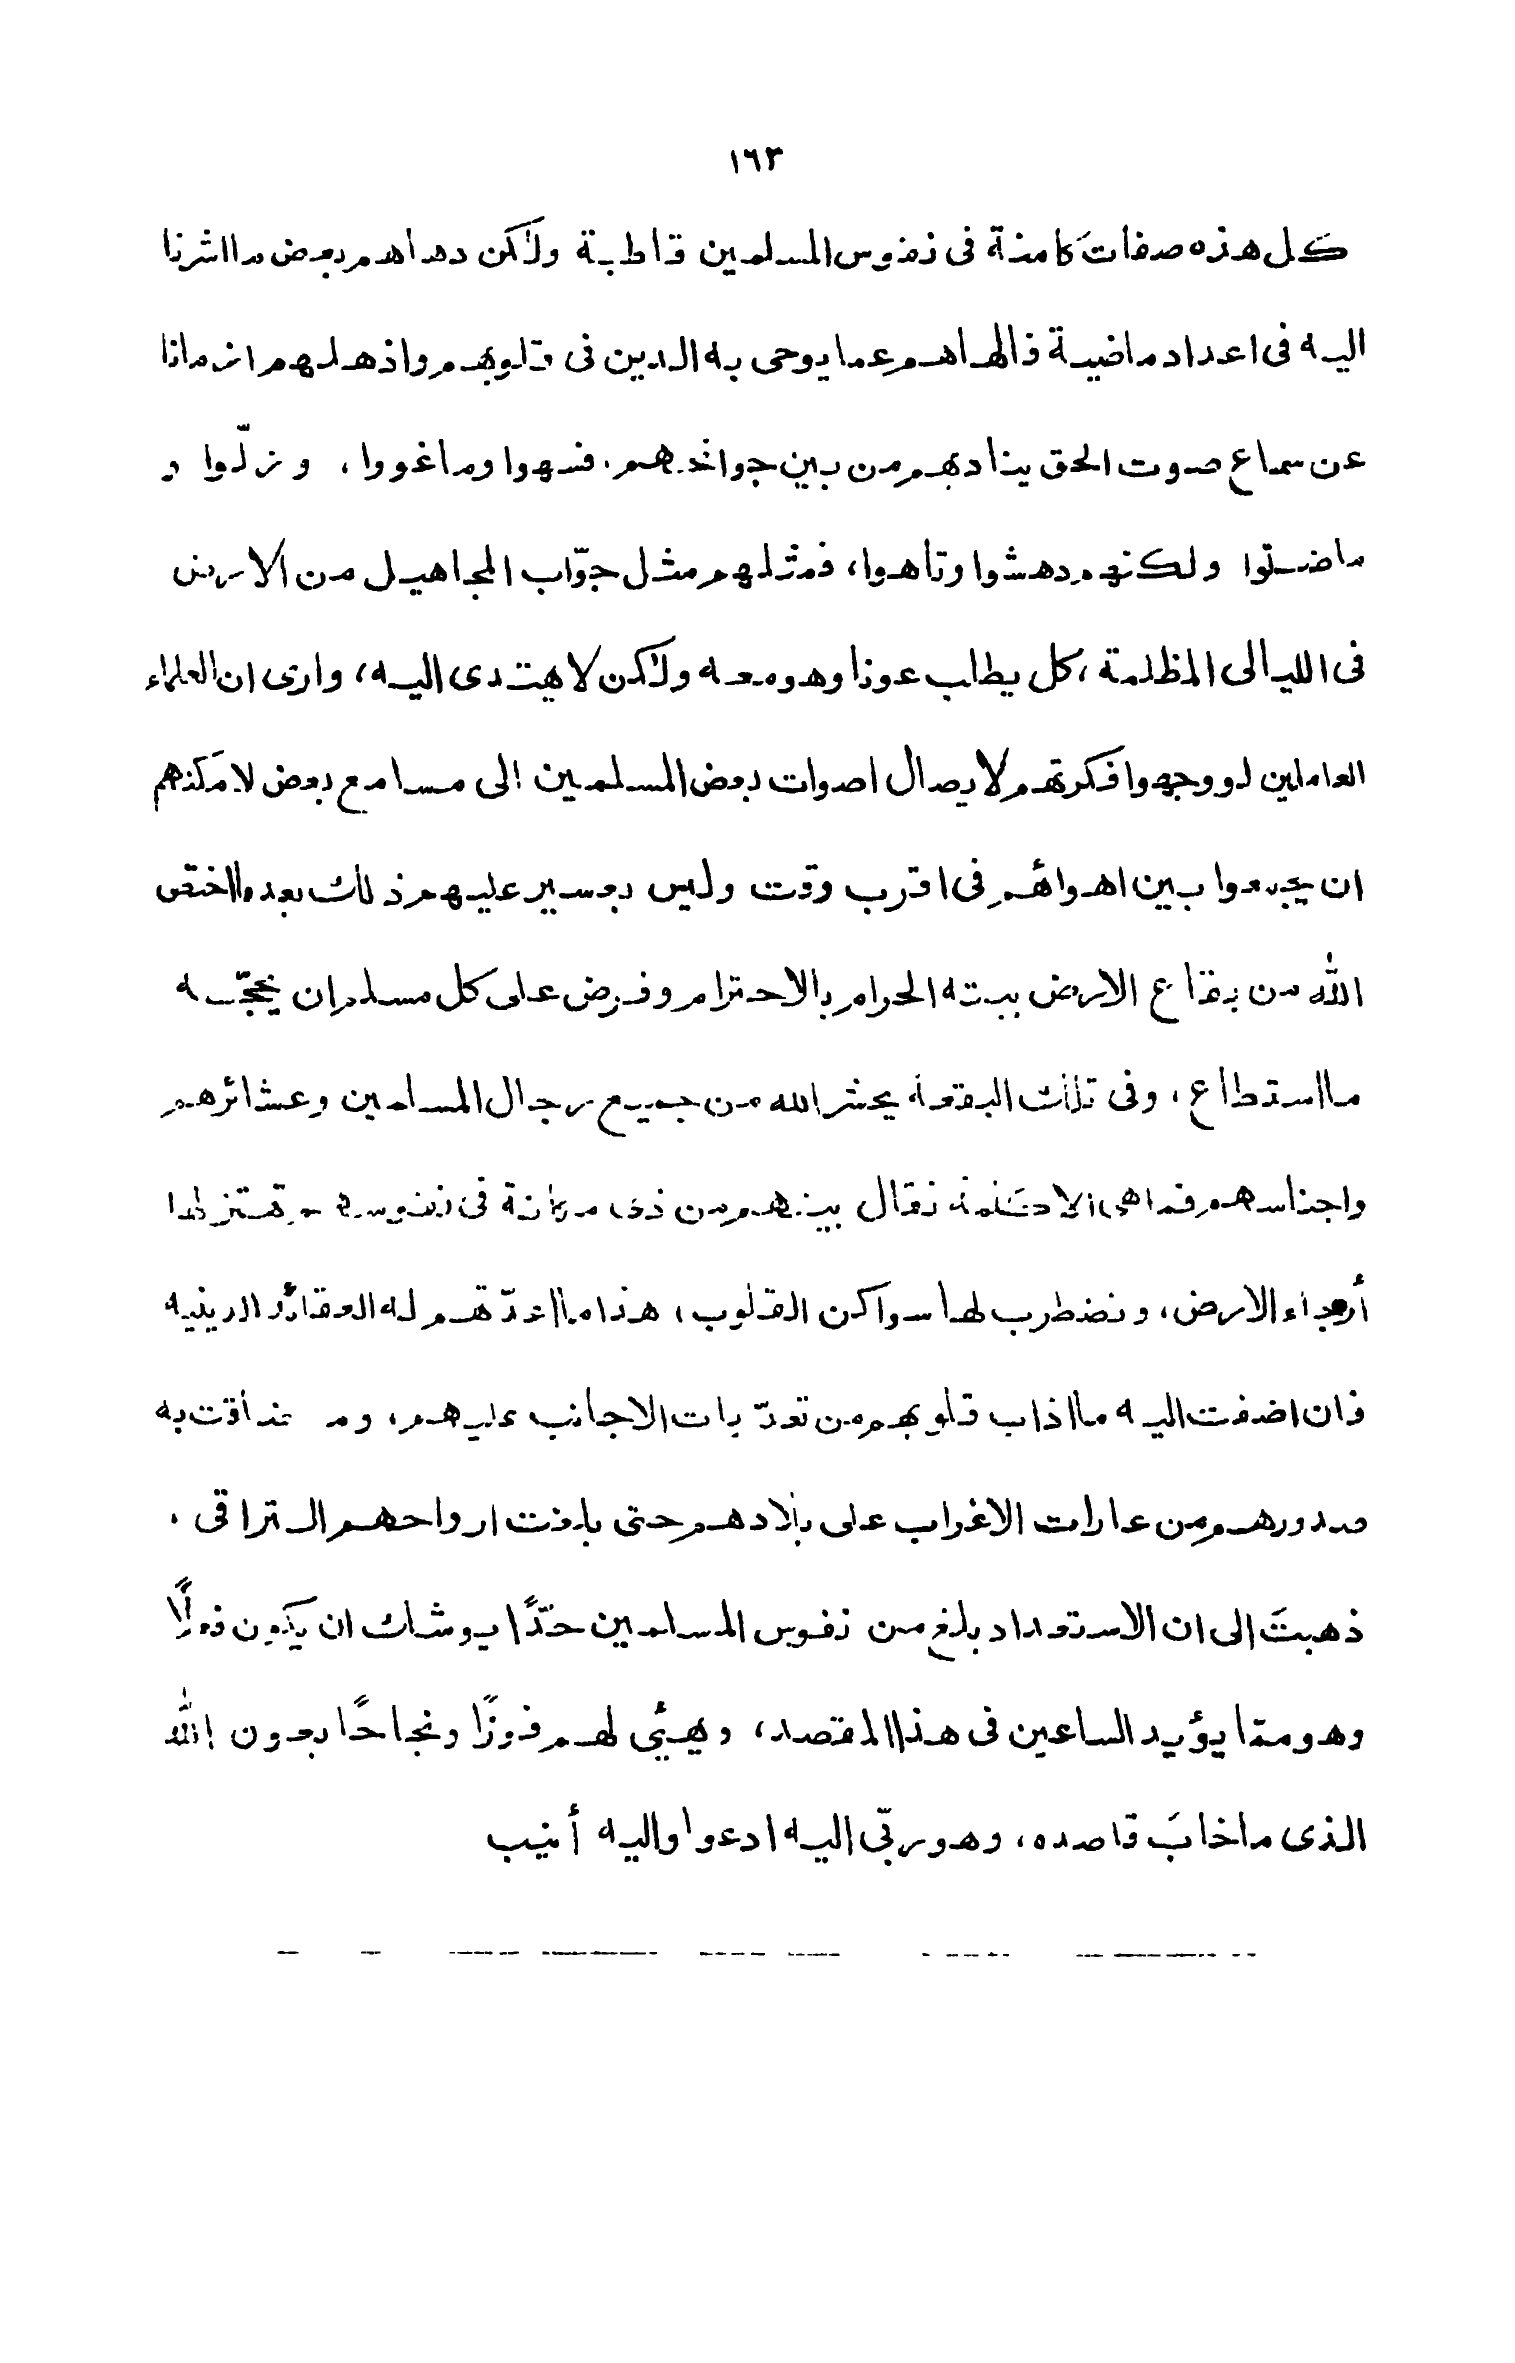 ١٦٣
كل هذه صفات كامنة فى نفوس المسلمين قاطبة ولكن دهاهم بعض ما اشرنا
اليه فى اعداد ماضية فالهاهم عما يوحى به الدين فى قلوبهم واذهلهم ازمانا
عن سماع صوت الحق يناديهم من بين جوانحهم. فسهوا وما غووا، وزلّوا و
ما ضلّوا ولكنهم دهشوا وتاهوا، فمثلهم مثل جوّاب المجاهيل من الارض
فى الليالى المظلمة، كل يطلب عونا وهو معه ولكن لا يهتدى اليه، وارى ان العلماء
العاملين لو وجهوا فكرتهم لايصال اصوات بعض المسلمين الى مسامع بعض لامكنهم
ان يجمعوا بين اهوائهم فى اقرب وقت وليس بعسير عليهم ذلك بعد ما اختص
اللّه من بقاع الارض بيته الحرام بالاحترام وفرض على كل مسلم ان يحجّه
ما استطاع، وفى تلك البقعة يحشر الله من جميع رجال المسلمين وعشائرهم
واجناسهم فما هى الا كلمة تقال بينهم من ذى مكانة فى نفوسهم تهتز لها
أرجاء الارض، وتضطرب لها سواكن القلوب، هذا ما اعدّتهم له العقائد الدينيه
فان اضفت اليه ما اذاب قلوبهم من تعدّيات الاجانب عليهم، وما ضاقت به
صدورهم من غارات الاغراب على بلادهم حتى بلغت ارواحهم التراقى.
ذهبتَ الى ان الاستعداد بلغ من نفوس المسلمين حدًّا يوشك ان يكون فعلًا
وهو ممّا يؤيد الساعين فى هذا المقصد، ويهيّئ لهم فوزًا ونجاحًا بعون اللّه
الذى ما خابَ قاصده، وهو ربّى اليه ادعوا واليه أنيب